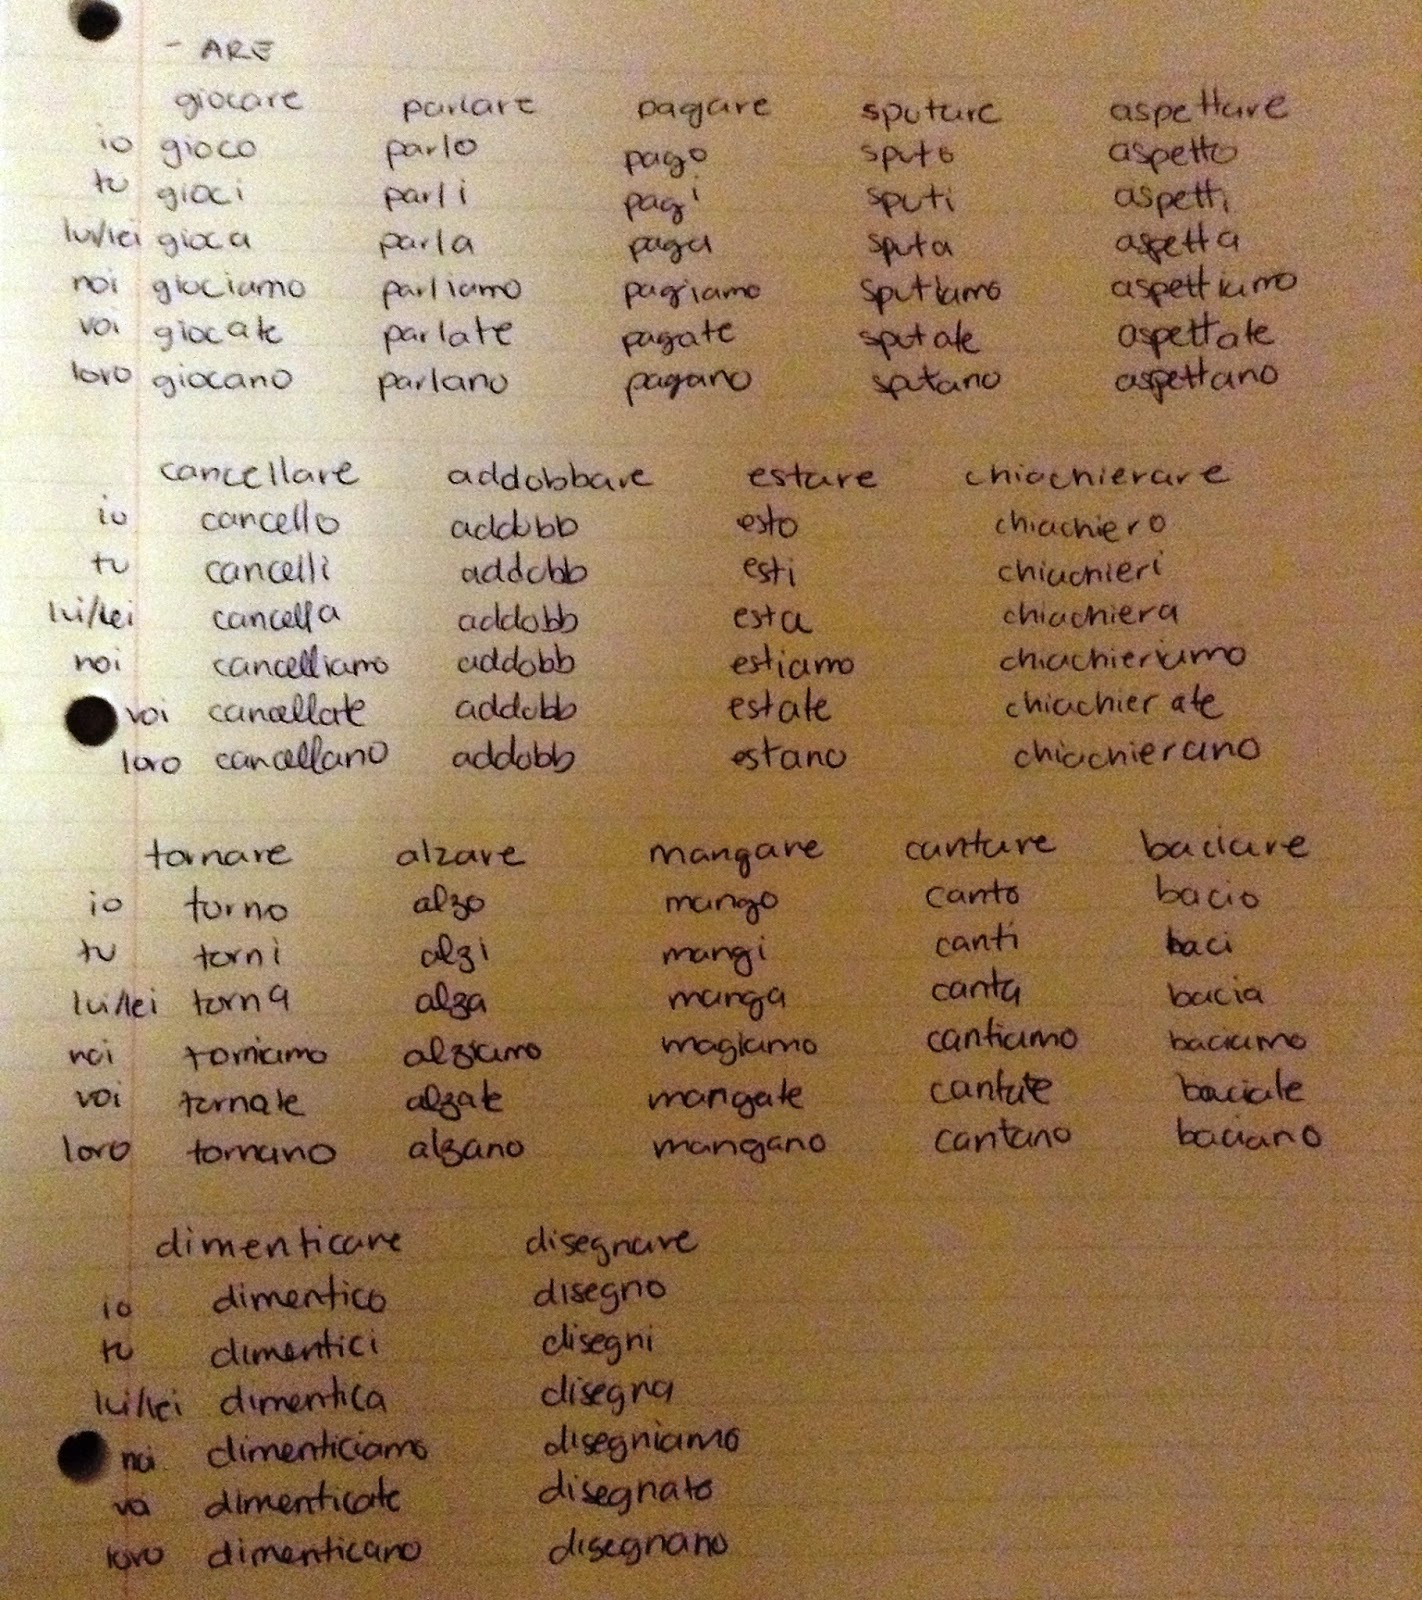 - ARE
giocare parlare pagare sputare aspettare
io gioco parlo pago sputo aspetto
tu gioci parli pagi sputi aspetti
lui/lei gioca parla paga sputa aspetta
noi giociamo parliamo pagiamo sputiamo aspettiamo
voi giocate parlate pagate sputate aspettate
loro giocano parlano pagano sputano aspettano
cancellare addobbare estare chiachierare
io cancello addobb esto chiachiero
tu cancelli addobb esti chiachieri
lui/lei cancella addobb esta chiachiera
noi cancelliamo addobb estiamo chiachieriamo
voi cancellate addobb estate chiachierate
loro cancellano addobb estano chiachierano
tornare alzare mangare cantare baciare
io torno alzo mango canto bacio
tu torni alzi mangi canti baci
lui/lei torna alza manga canta bacia
noi torniamo alziamo magiamo cantiamo baciamo
voi tornate alzate mangate cantate baciate
loro tornano alzano mangano cantano baciano
dimenticare disegnare
io dimentico disegno
tu dimentici disegni
lui/lei dimentica disegna
noi dimenticiamo disegniamo
voi dimenticate disegnato
loro dimenticano disegnano